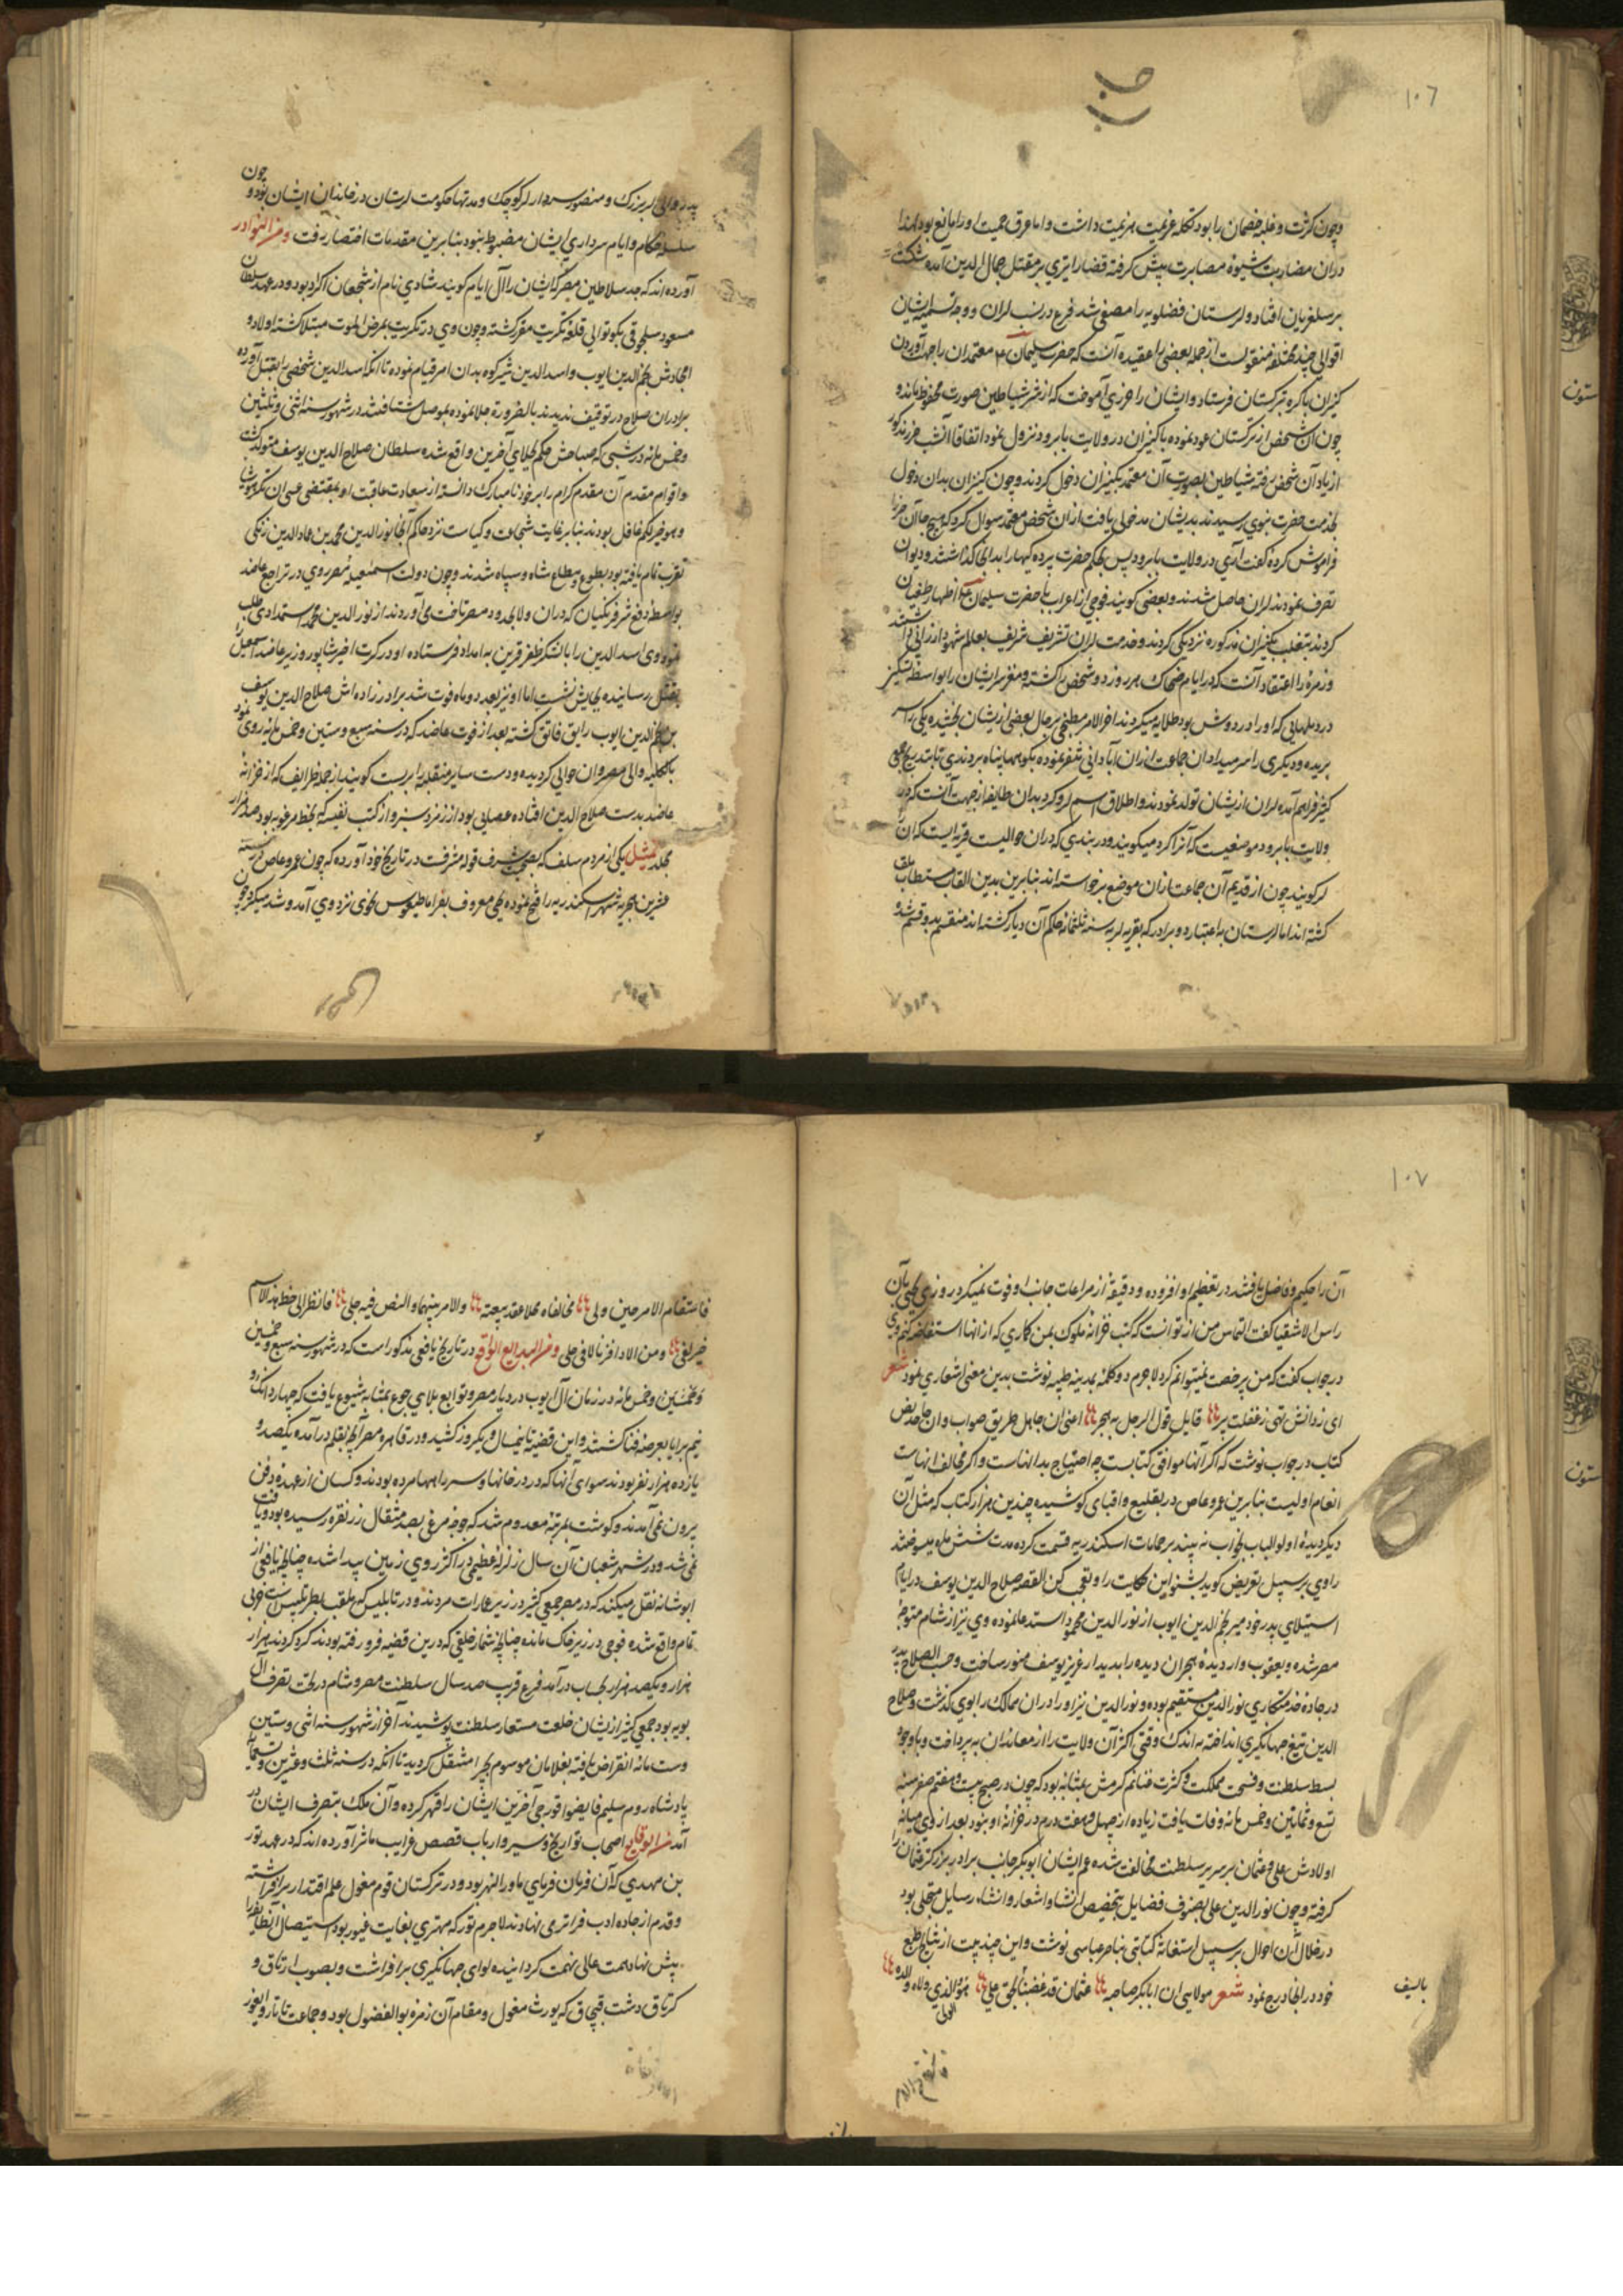 ١٠٦
و چون کثرت و غلبه خصمان را بود تکلم عزیمت هزیمت داشت و اما عرق حمیت او را مانع بود لهذا
در ان مضاربت شیوه مصابرت پیش گرفته قضا را تیری بر مقتل جمال الدین آمده شکست
بر سلغریان افتاد و لرستان فضلویه را مصفی شد فرع در نسب لران و وجه تسمیه ایشان
اقوالی چند مختلفه منقولست از جمله بعضی را عقیده آنست که حضرت سلیمان ع معتمدان را جهت آوردن
کنیزان باکره بترکستان فرستاد و ایشان را حرزی آموخت که از شر شیاطین صورت محفوظ ماند و
چون آن شخص از ترکستان عود نموده با کنیزان در ولایت بابرود نزول نمود اتفاقا آنشب حرز مذکور
از یاد آن شخص رفته شیاطین بصورت آن معتمد بکنیزان دخول کردند و چون کنیزان بدان دخول
بخدمت حضرت نبوی رسیدند بدیشان مدخلی یافت از ان شخص معتمد سوال کرد که هیچ جا آن حرز را
فراموش کرده گفت آری در ولایت بابرود پس بحکم حضرت پرده کیها را بدانجا گذاشتند و دیوان
تصرف نمودند لران حاصل شدند و بعضی گویند فوجی از اعراب با حضرت سلیمان ع اظهار طغیان
کردند بتغلب بکنیزان مذکوره نزدیکی کردند و خدمت لران تشریف شریف بعالم شهود ارزانی داشتند
و زمره را اعتقاد آنست که در ایام ضحاک هر روز دو شخص را کشته و مغز سر ایشان را بواسطه تسکین
درد ملهایی که او را در دوش بود طلایه میکردند اخر الامر مطبخی بر حال بعضی از ایشان بخشیده یکی را سر
بریده و دیگری را سر میداد ان جماعت از ان آبادانی تنفر نموده بکوهها پناه بردندی تا بتدریج جمعی
کثیر فراهم آمده لران از یشان تولد نمودند و اطلاق اسم لر و کرد بدان طایفه از جهت آنست که در
ولایت بابرود موضعیست که آنرا کرد میگویند و در بندی که در ان حوالیست قریه ایست که ان
لر گویند چون از قدیم آن جماعت از ان موضع برخواسته اند بنابرین بدین القاب مستطاب ملقب
گشته اند اما لرستان باعتبار دو برادر که بقریه لر به سنه ثلثمائه حاکم آن دیار گشته اند منقسم بدو قسم شد و
ستون
پدر والی لر بزرک و منصور سردار لر کوچک و مدتها حکومت لرستان در خاندان ایشان بود و چون
سلسله حکام و ایام سرداری ایشان مضبوط نبود بنابرین مقدمات اختصار رفت و من النوادر
آورده اند که جد سلاطین مصر که ایشان را آل ایام گویند شادی نام از شجعان اکراد بود و در عهد سلطان
مسعود سلجوقی بکوتوالی قلعه تکریت مقرر گشته و چون وی در تکریت بمرض الموت مبتلا گشته اولاد و
امجادش نجم الدین ایوب و اسد الدین شیرکوه بدان امر قیام نموده تا آنکه اسد الدین شخصی را بقتل آورده
برادران صلاح در توقیف ندیدند بالضروره جلا نموده بموصل شتافتند در شهور سنه اثنی و ثلثین
و خمس مائه در شبی که صباحش حکم جلای آخرین واقع شده سلطان صلاح الدین یوسف متولد گشت
و اقوام مقدم آن مقدم کرام را بر خود نا مبارک دانسته از سعادت عاقبت او بمقتضی عسی ان تکرهوا شیا
و هو خیر لکم غافل بودند بنابر غایت شجاعت و کیاست نزد حاکم آنجا نور الدین محمد بن عماد الدین زنگی
تقرب تمام یافته بود بطلوع و مطلع شاه و سپاه شدند و چون دولت اسمعیلیه مصر روی در تراجع عاضد
بواسطه دفع شر فرنکیان که دران ولا بحدود مصر تاخت می آوردند از نور الدین محمد استمدادی طلب
نمود وی اسد الدین را با لشکر ظفر قرین به امداد فرستاده او در کرت اخیر شاپور وزیر عاضد اسمعیل را
بقتل رسانیده بجایش نشست اما او نیز بعد دو ماه فوت شد برادر زاده اش صلاح الدین یوسف
بن نجم الدین ایوب راتق فاتق گشته بعد از فوت عاضد که در سنه سبع و ستین و خمس مائه روی نمود
بالکلیه والی مصر و ان حوالی گردیده و دست سایر متقلبه را بربست گویند از جمله ظرایف که از خزانه
عاضد بدست صلاح الدین افتاده عصایی بود از زمرد سبز و از کتب نفیسه که بخط مرغوبه بود صد هزار
مجلد تمثیل یکی از مردم سلف که بصحبت شرف قوله مشرفست در تاریخ خود آورده که چون عمرو عاص در سنه
عشرین هجریه شهر اسکندریه را فتح نموده یحی معروف بغراماطیقوس نحوی نزد وی آمد و شد میکرد چون
١٠٧
آن را حکیم و فاضل یافتند در تعظیم او افزوده و دقیقه از مراعات جانب او فوت نمیکرد روزی یحیی بآن
راس الاشقیا گفت التماس من از تو آنست که کتب خزانه ملوک بمن گذاری که از انها استفاضه کنم وی
در جواب گفت که من بی رخصت نمیتوانم کرد لاجرم دو کلمه بمدینه طیبه نوشت بدین معنی اشعاری نمود شعر
ای ز دانش تهی ز غفلت پر قایل قول الرجل یهجر اعنی ان جاهل طریق صواب وان جاحد نص
کتاب در جواب نوشت که اگر آنها موافق کتابست چه احتیاج بدانهاست و اگر مخالف انهاست
انعام اولیست بنابرین عمرو عاص در تقلیع و افنای کوشیده چندین هزار کتاب که مثل آن
دیگر دیده اولوالباب بخواب نه بیند بر حمامات اسکندریه قسمت کرده مدت شش ماه میسوختند
راوی بر سبیل تعریض گوید بشنو این حکایت را و تعجب کن القصه صلاح الدین یوسف در ایام
استیلای پدر خود میر نجم الدین ایوب از نور الدین محمود استدعا نموده وی نیز از شام متوجه
مصر شده و یعقوب وار دیده هجران دیده را بدیدار عزیز یوسف منور ساخت و حسب الصلاح پدر
در جاده خدمتکاری نور الدین مستقیم بوده و نور الدین نیز او را در ان ممالک را بوی گذاشت و صلاح
الدین تیغ جهانگیری انداخته به اندک وقتی اکثر آن ولایت را از معاندان به پرداخت و با وجود
بسط سلطنت و فسحت مملکت و کثرت غنائم کرمش بمثابه بود که چون در صبح بیست و هفتم صفر سنه
تسع و ثمانین و خمس مائه وفات یافت زیاده از چهل و هفت درم در خزانه او نبود بعد از وی میانه
اولادش علی و عثمان بر سریر سلطنت مخالفت شده عم ایشان ابوبکر جانب برادر بزرکتر عثمان را
گرفته و چون نور الدین علی بصنوف فضایل بتخصیص انشاء اشعار و انشاء رسایل متحلی بود
در خلال آن احوال بر سبیل استغاثه کتابتی بناصر عباسی نوشت و این چند بیت از نتایج طبع
خود در انجا درج نمود شعر مولایی ان ابابکر صاحبه عثمان قد غصبنا لحق علی هو الذی ولاه والده
بالسیف
ستون
فاستقام الامر حین ولی مخالفاه محلا عقد بیعته والامر بینهما والنص فیه جلی فانظر الی حظ هذا الاسم
لقی و من الاواخر ما لاقی علی و من البدایع الوقایع در تاریخ یافعی مذکور است که در شهور سنه سبع و خمسین
و خمس مائه در زمان آل ایوب در دیار مصر و توابع بلای جوع بمثابه شیوع یافت که چهار دانک و
نیم برایا بعرصه فنا گشتند و این قضیه تا یکسال و یکروز کشید و در قاهره مصر آنچه بقلم در آمده یکصد و
یازده هزار نفر بودند سوای آنها که در در خانها و سر راهها مرده بودند و کسان از عهده دفن
بیرون نمی آمدند و گوشت بمرتبه معدوم شد که وجه مرغی بصد مثقال زر نقره رسیده بود و یافت
نمی شد و در شهر شعبان آن سال زلزله عظیمی در اکثر روی زمین پیدا شده چنانچه یافعی از
ابوشامه نقل میکند که در مصر جمعی کثیر در زیر عمارات مردند و در تابلیس که ملقب بطرابلیس است خرابی
تمام واقع شده فوجی در زیر خاک مانده چنانچه شمار خلقی که درین قضیه فرو رفته بودند کردند هزار
هزار و یکصد هزار بحساب درآمد فرع قرب صد سال سلطنت مصر و شام در تحت تصرف آل
بویه بود جمعی کثیر از ایشان خلعت مستعار سلطنت پوشیدند آخر از شهور سنه اثنی و ستین
وست مائه انقراض یافته بغلامان موسوم بحیرا منتقل گردید تا آنکه در سنه ثلث و عشرین و تسعمائه
پادشاه روم سلیم فایضوا قورچی آخرین ایشان را قهر کرده و آن ملک بتصرف ایشان در
آمد من الوقایع اصحاب تواریخ و سیر و ارباب قصص غرایب ماثر آورده اند که در عهد تور
بن مهدی که آن فرمان فرمای ماورا النهر بود و در ترکستان قوم مغول علم اقتدار برافراشته
و قدم از جاده ادب فراتری نهادند لاجرم تور که مهتری بغایت غیور بود استیصال آنطایفه را
پیش نهاد همت عالی نهمت گردانیده لوای جهانگیری برافراشت و بصوب ارتاق و
کرتاق دشت قبچاق که یورت مغول و مقام آن زمره بوالفضول بود و جماعت تاتار و ایغور